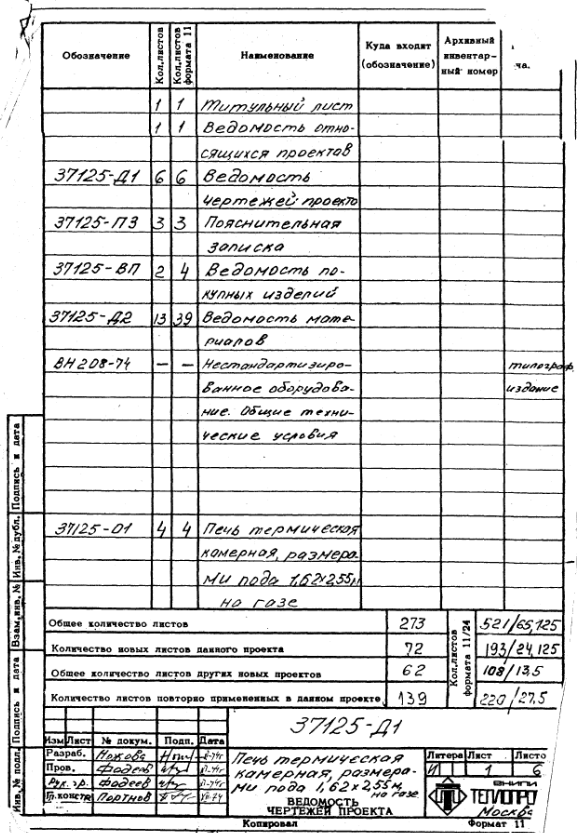 Обозначение Кол.листов Кол.листов формата 11 Наименование Куда входит (обозначение) Архивный инвентар-ный номер ча.
1 1 Титульный лист
1 1 Ведомость отно-
сящихся проектов
37125-Д1 6 6 Ведомость
чертежей проекта
37125-ПЗ 3 3 Пояснительная
записка
37125-ВП 2 4 Ведомость по-
купных изделий
37125-Д2 13 39 Ведомость мате-
риалов
ВН208-74 — — Нестандартизиро- типограф.
ванное оборудова- издание
ние. Общие техни-
ческие условия
37125-01 4 4 Печь термическая
камерная, размера-
ми пода 1,62×2,55м,
на газе
Общее количество листов 273 Кол.листов формата 11/24 521/65,125
Количество новых листов данного проекта 72 193/24,125
Общее количество листов других новых проектов 62 108/13,5
Количество листов повторно примененных в данном проекте 139 220/27,5
37125-Д1
Изм Лист № докум. Подп. Дата
Разраб.
Пров. Фадеев
Рук. гр. Фадеев
Гл.констр Портнов
Печь термическая
камерная, размера-
ми пода 1,62×2,55м,
на газе
ВЕДОМОСТЬ
ЧЕРТЕЖЕЙ ПРОЕКТА
Литера Лист Листо
И 1 6
ВНИПИ
ТЕПЛОПРО
Москва
Копировал Формат 11
Инв.№ подл. Подпись и дата Взам.инв.№ Инв.№ дубл. Подпись и дата